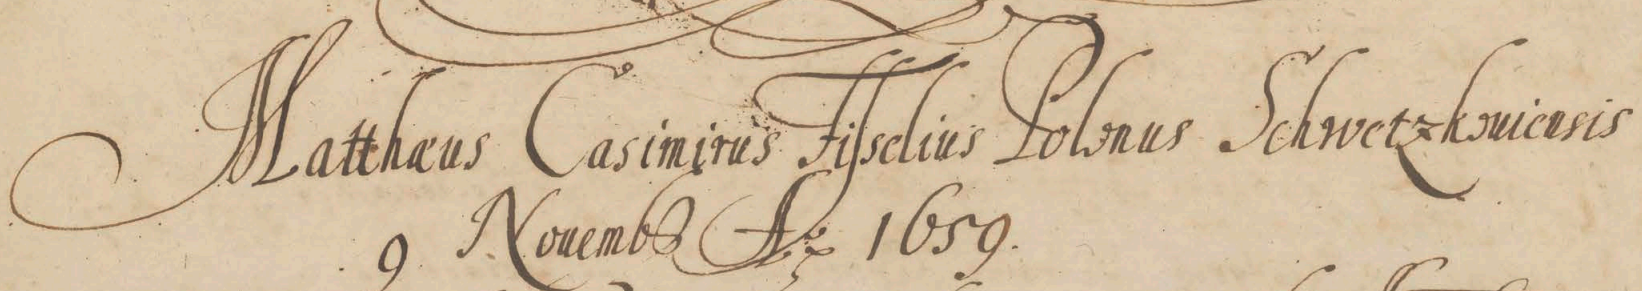 Matthæus Casimirus Fisselius Polonus Schwetzkouiensis
9 Nouemb Aº 1659.